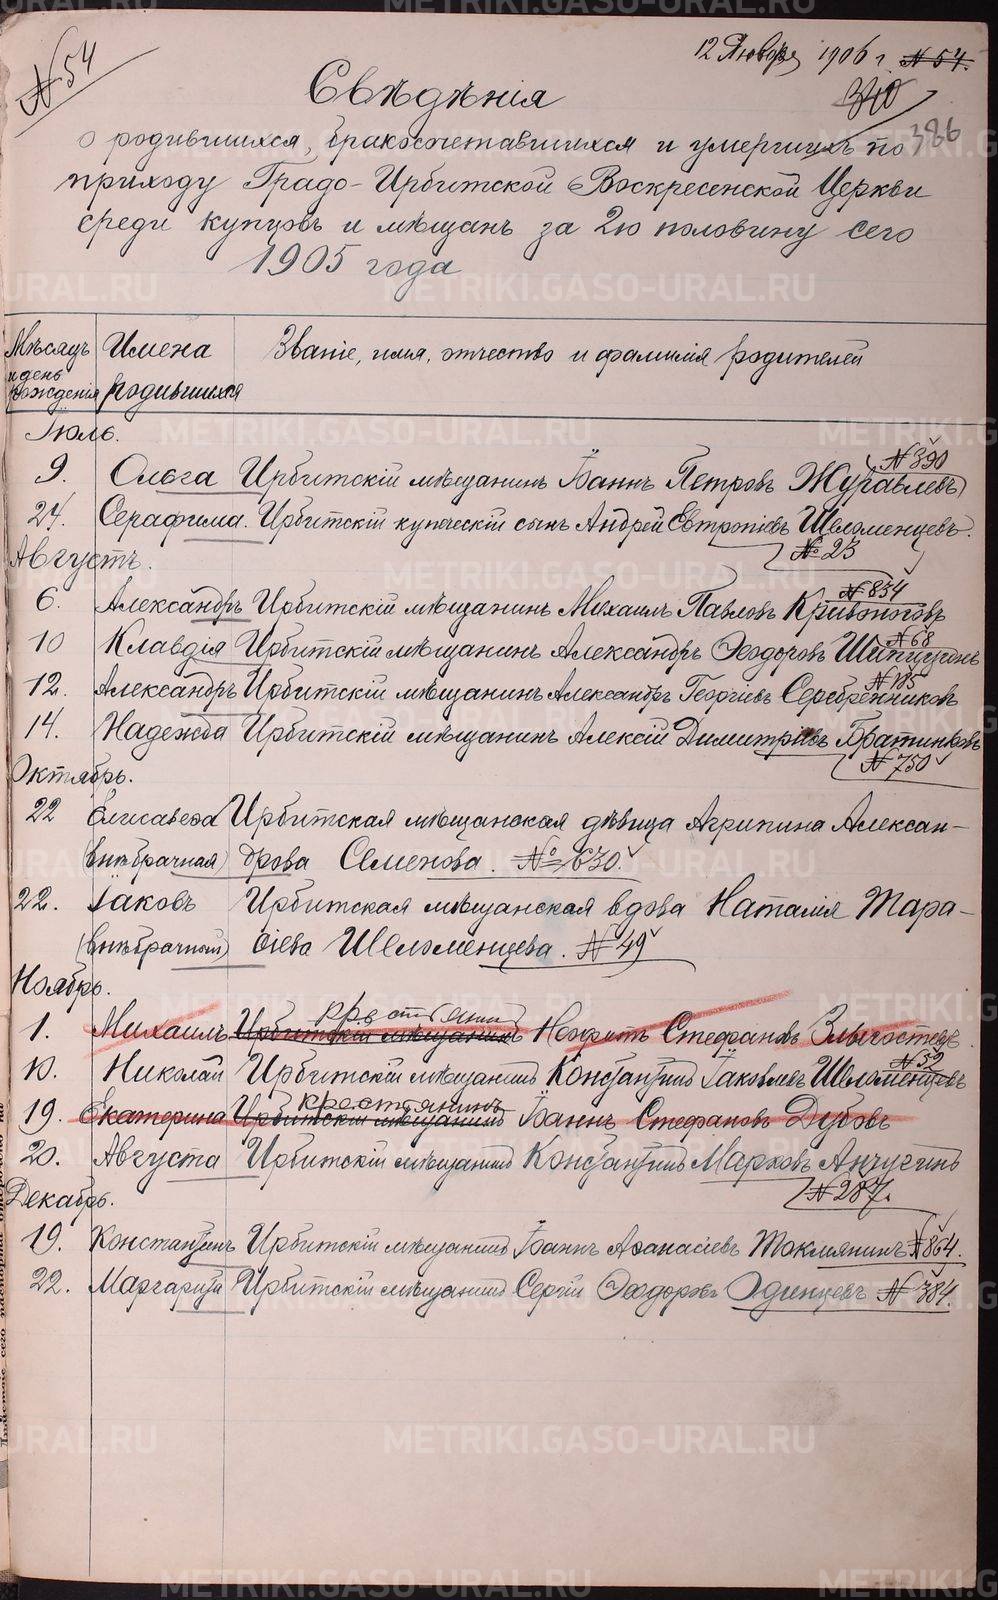 № 54
12 Января 1906 г. № 54.
340
386
Свѣдѣнія
о родившихся, бракосочетавшихся и умершихъ по
приходу Градо-Ирбитской Воскресенской Церкви
среди купцовъ и мѣщанъ за 2ю половину сего
1905 года
Мѣсяцъ и день рожденія
Имена родившихся
Званіе, имя, отчество и фамилія родителей
Іюль.
№ 390
9. Ольга Ирбитскій мѣщанинъ Іоаннъ Петровъ Журавлевъ
24. Серафима. Ирбитскій купеческій сынъ Андрей Евтропіевъ Шеломенцевъ.
№ 23
Августъ.
№ 854
6. Александръ Ирбитскій мѣщанинъ Михаилъ Павловъ Кривоноговъ
№ 68
10 Клавдія Ирбитскій мѣщанинъ Александръ Ѳеодоровъ Шипицинъ
№ 185
12. Александръ Ирбитскій мѣщанинъ Александръ Георгіевъ Серебренниковъ
14. Надежда Ирбитскій мѣщанинъ Алексій Димитріевъ Братинковъ
№ 750
Октябрь.
22 Елисавета Ирбитская мѣщанская дѣвица Агрипина Алексан-
(внѣбрачная) дрова Семенова. № 630.
22. Іаковъ Ирбитская мѣщанская вдова Наталія Тара-
(внѣбрачный) сіева Шеломенцева. № 49
Ноябрь.
крестьянинъ
1. Михаилъ Ирбитскій мѣщанинъ Неофитъ Стефановъ
№ 32
10. Николай Ирбитскій мѣщанинъ Константинъ Іаковлевъ Шеломенцевъ
крестьянинъ
19. Екатерина Ирбитскій мѣщанинъ Іоаннъ Стефановъ Дубовъ
20. Августа Ирбитскій мѣщанинъ Константинъ Марковъ Анчугинъ
№ 287.
Декабрь.
19. Константинъ Ирбитскій мѣщанинъ Іоаннъ Аѳанасіевъ Токмянинъ № 864.
22. Маргарита Ирбитскій мѣщанинъ Сергій Ѳеодоровъ Одинцевъ № 384.
METRIKI.GASO-URAL.RU